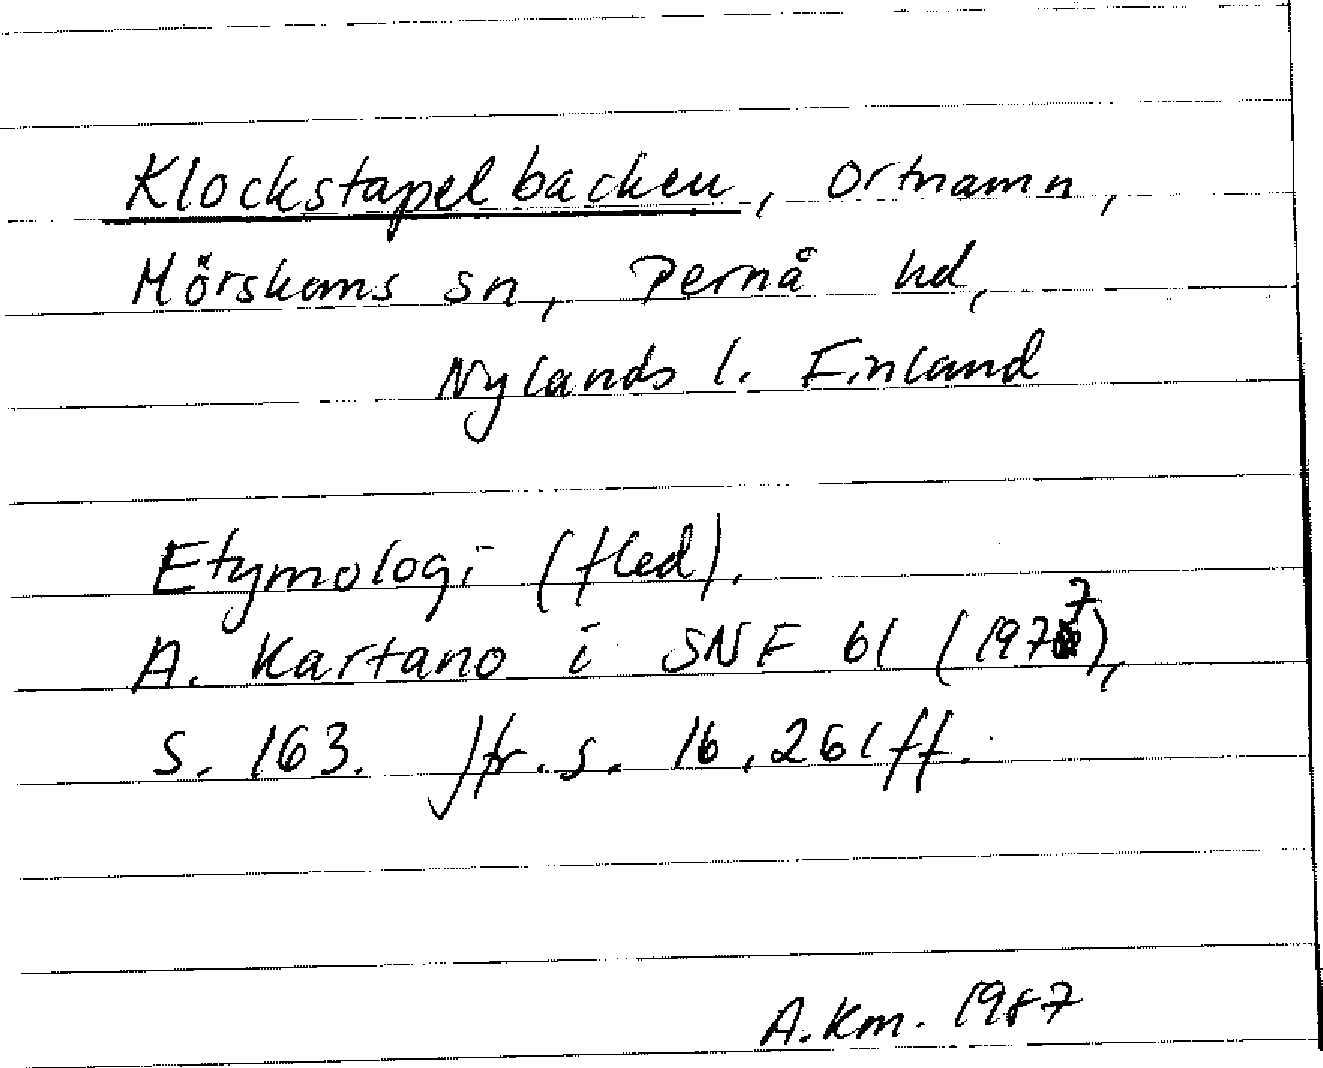 Klockstapelbacken, ortnamn,
Mörskoms sn, Pernå hd,
Nylands l. Finland
Etymologi (fled).
A. Kartano i SNF 61 (1977),
s. 163. Jfr. s. 16, 261 ff.
A.Km. 1987